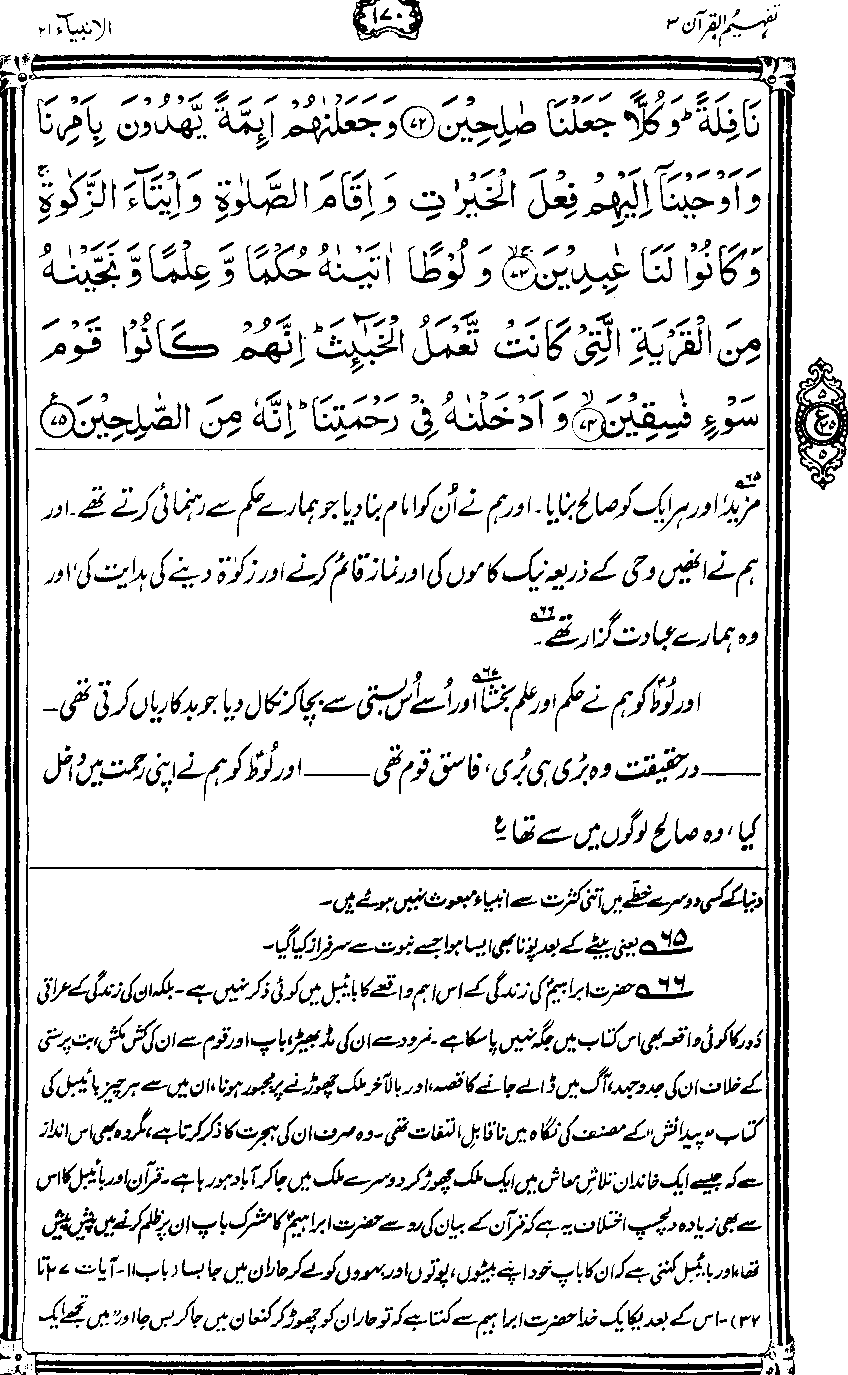 تفہیم القرآن ۳
۱۷۰
الانبیاء ۲۱
نَافِلَةً ؕ وَكُلًّا جَعَلْنَا صٰلِحِیْنَ ﴿۷۲﴾ وَجَعَلْنٰهُمْ اَىِٕمَّةً یَّهْدُوْنَ بِاَمْرِنَا
وَاَوْحَیْنَاۤ اِلَیْهِمْ فِعْلَ الْخَیْرٰتِ وَاِقَامَ الصَّلٰوةِ وَاِیْتَآءَ الزَّكٰوةِ ۚ
وَكَانُوْا لَنَا عٰبِدِیْنَ ﴿۷۳﴾ وَلُوْطًا اٰتَیْنٰهُ حُكْمًا وَّعِلْمًا وَّنَجَّیْنٰهُ
مِنَ الْقَرْیَةِ الَّتِیْ كَانَتْ تَّعْمَلُ الْخَبٰٓىِٕثَ ؕ اِنَّهُمْ كَانُوْا قَوْمَ
سَوْءٍ فٰسِقِیْنَ ﴿۷۴﴾ وَاَدْخَلْنٰهُ فِیْ رَحْمَتِنَا ؕ اِنَّهٗ مِنَ الصّٰلِحِیْنَ ﴿۷۵﴾
۵ ع ۲۵ ۵
مزید٦٥، اور ہر ایک کو صالح بنایا۔ اور ہم نے اُن کو امام بنا دیا جو ہمارے حکم سے رہنمائی کرتے تھے۔ اور
ہم نے انھیں وحی کے ذریعہ نیک کاموں کی اور نماز قائم کرنے اور زکوٰۃ دینے کی ہدایت کی، اور
وہ ہمارے عبادت گزار تھے٦٦۔
اور لُوطؑ کو ہم نے حکم اور علم بخشا٦٧ اور اُسے اُس بستی سے بچا کر نکال دیا جو بدکاریاں کرتی تھی۔
—— درحقیقت وہ بڑی ہی بُری، فاسق قوم تھی —— اور لُوطؑ کو ہم نے اپنی رحمت میں داخل
کیا، وہ صالح لوگوں میں سے تھا ؏
دنیا کے کسی دوسرے خطّے میں اتنی کثرت سے انبیاء مبعوث نہیں ہوئے ہیں۔
٦٥ یعنی بیٹے کے بعد پوتا بھی ایسا ہوا جسے نبوت سے سرفراز کیا گیا۔
٦٦ حضرت ابراہیمؑ کی زندگی کے اس اہم واقعے کا بائیبل میں کوئی ذکر نہیں ہے۔ بلکہ ان کی زندگی کے عراقی
دَور کا کوئی واقعہ بھی اس کتاب میں جگہ نہیں پا سکا ہے۔ نمرود سے ان کی مڈبھیڑ، باپ اور قوم سے ان کی کش مکش، بت پرستی
کے خلاف ان کی جدوجہد، آگ میں ڈالے جانے کا قصہ، اور بالآخر ملک چھوڑنے پر مجبور ہونا، ان میں سے ہر چیز بائیبل کی
کتاب ”پیدائش“ کے مصنف کی نگاہ میں ناقابلِ التفات تھی۔ وہ صرف ان کی ہجرت کا ذکر کرتا ہے، مگر وہ بھی اس انداز
سے کہ جیسے ایک خاندان تلاشِ معاش میں ایک ملک چھوڑ کر دوسرے ملک میں جا کر آباد ہو رہا ہے۔ قرآن اور بائیبل کا اس
سے بھی زیادہ دلچسپ اختلاف یہ ہے کہ قرآن کے بیان کی رو سے حضرت ابراہیمؑ کا مشرک باپ ان پر ظلم کرنے میں پیش پیش
تھا، اور بائیبل کہتی ہے کہ ان کا باپ خود اپنے بیٹوں، پوتوں اور بہوؤں کو لے کر حاران میں جا بسا (باب ۱۱۔ آیات ۲۷ تا
۳۲)۔ اس کے بعد یکایک خدا حضرت ابراہیم سے کہتا ہے کہ تو حاران کو چھوڑ کر کنعان میں جا کر بس جا اور ”میں تجھے ایک